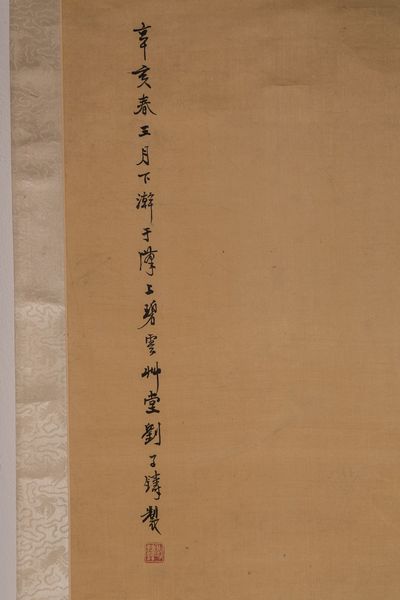 辛亥春三月下澣于濠上碧雲艸堂劉子鐸製